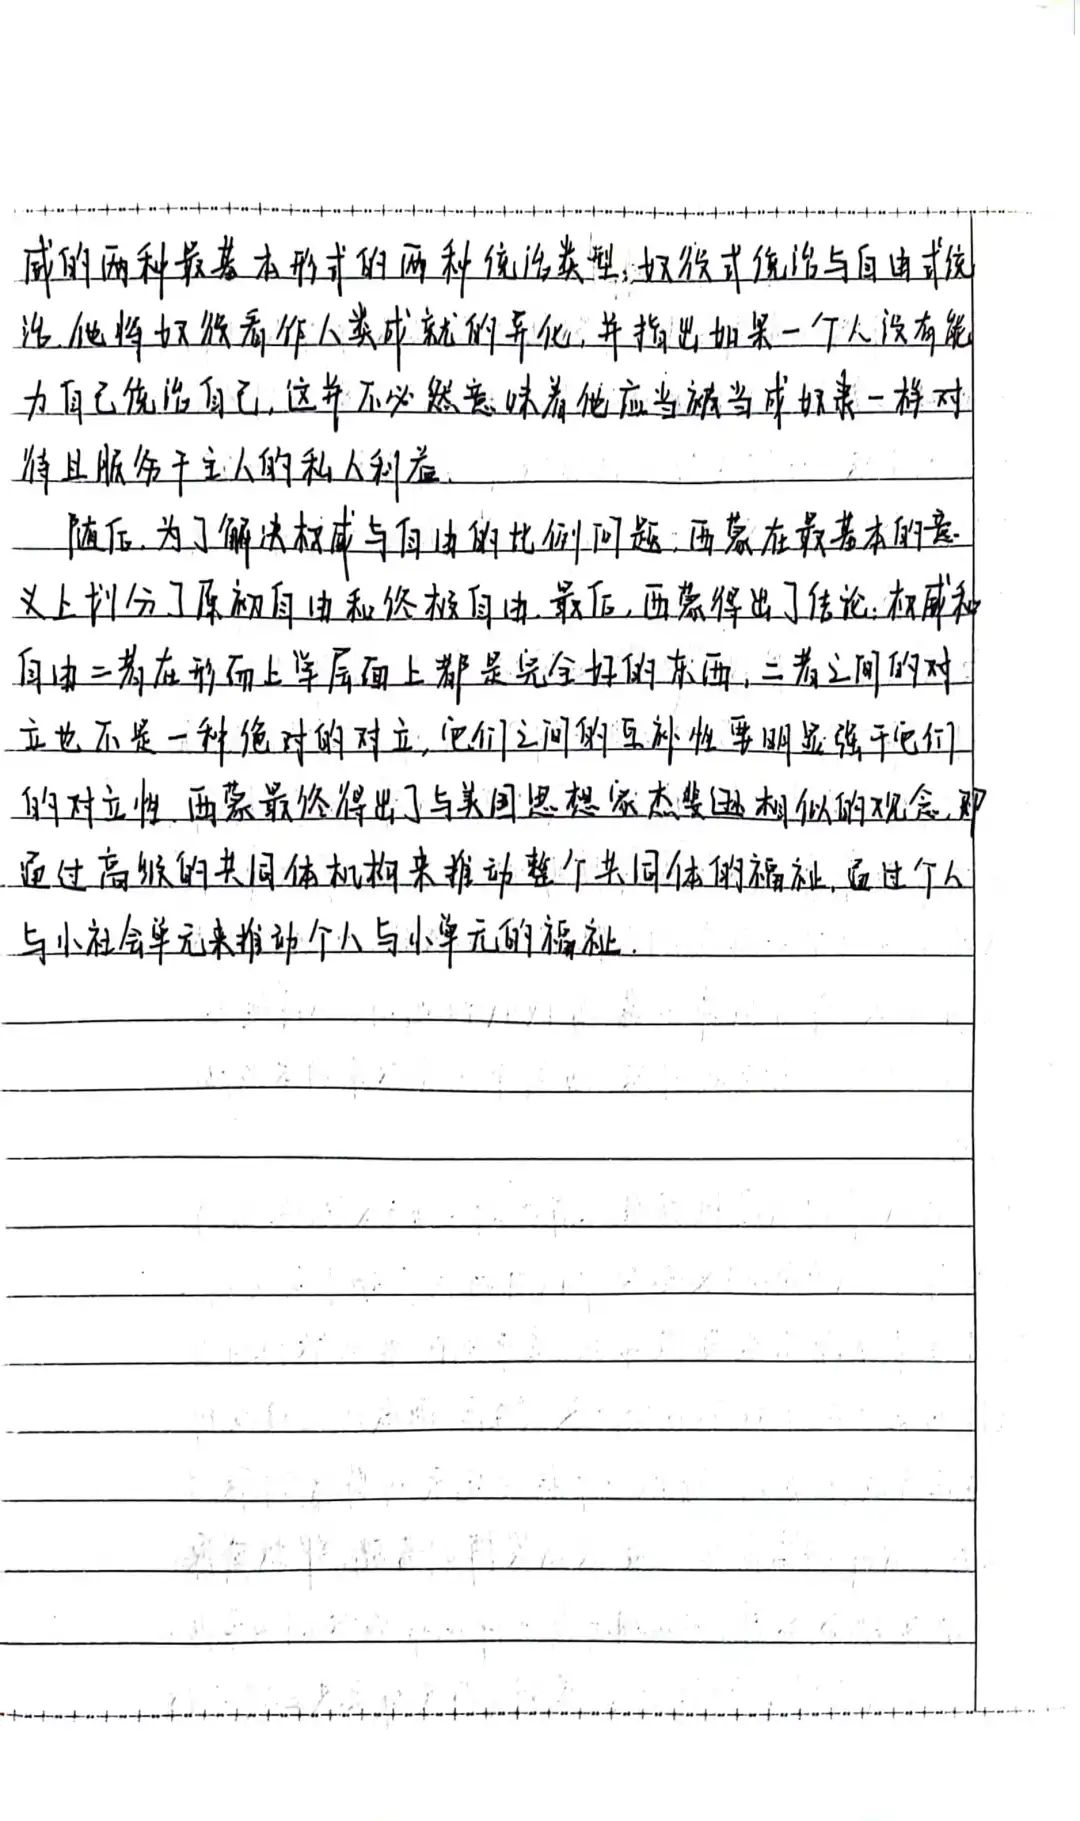 威的两种最基本形式的两种统治类型：奴役式统治与自由式统
治。他将奴役看作人类成就的异化，并指出如果一个人没有能
力自己统治自己，这并不必然意味着他应当被当成奴隶一样对
待且服务于主人的私人利益。
随后，为了解决权威与自由的比例问题，西蒙在最基本的意
义上划分了原初自由和终极自由。最后，西蒙得出了结论：权威和
自由二者在形而上学层面上都是完全好的东西，二者之间的对
立也不是一种绝对的对立，它们之间的互补性要明显强于它们
的对立性。西蒙最终得出了与美国思想家杰斐逊相似的观念，即
通过高级的共同体机构来推动整个共同体的福祉，通过个人
与小社会单元来推动个人与小单元的福祉。